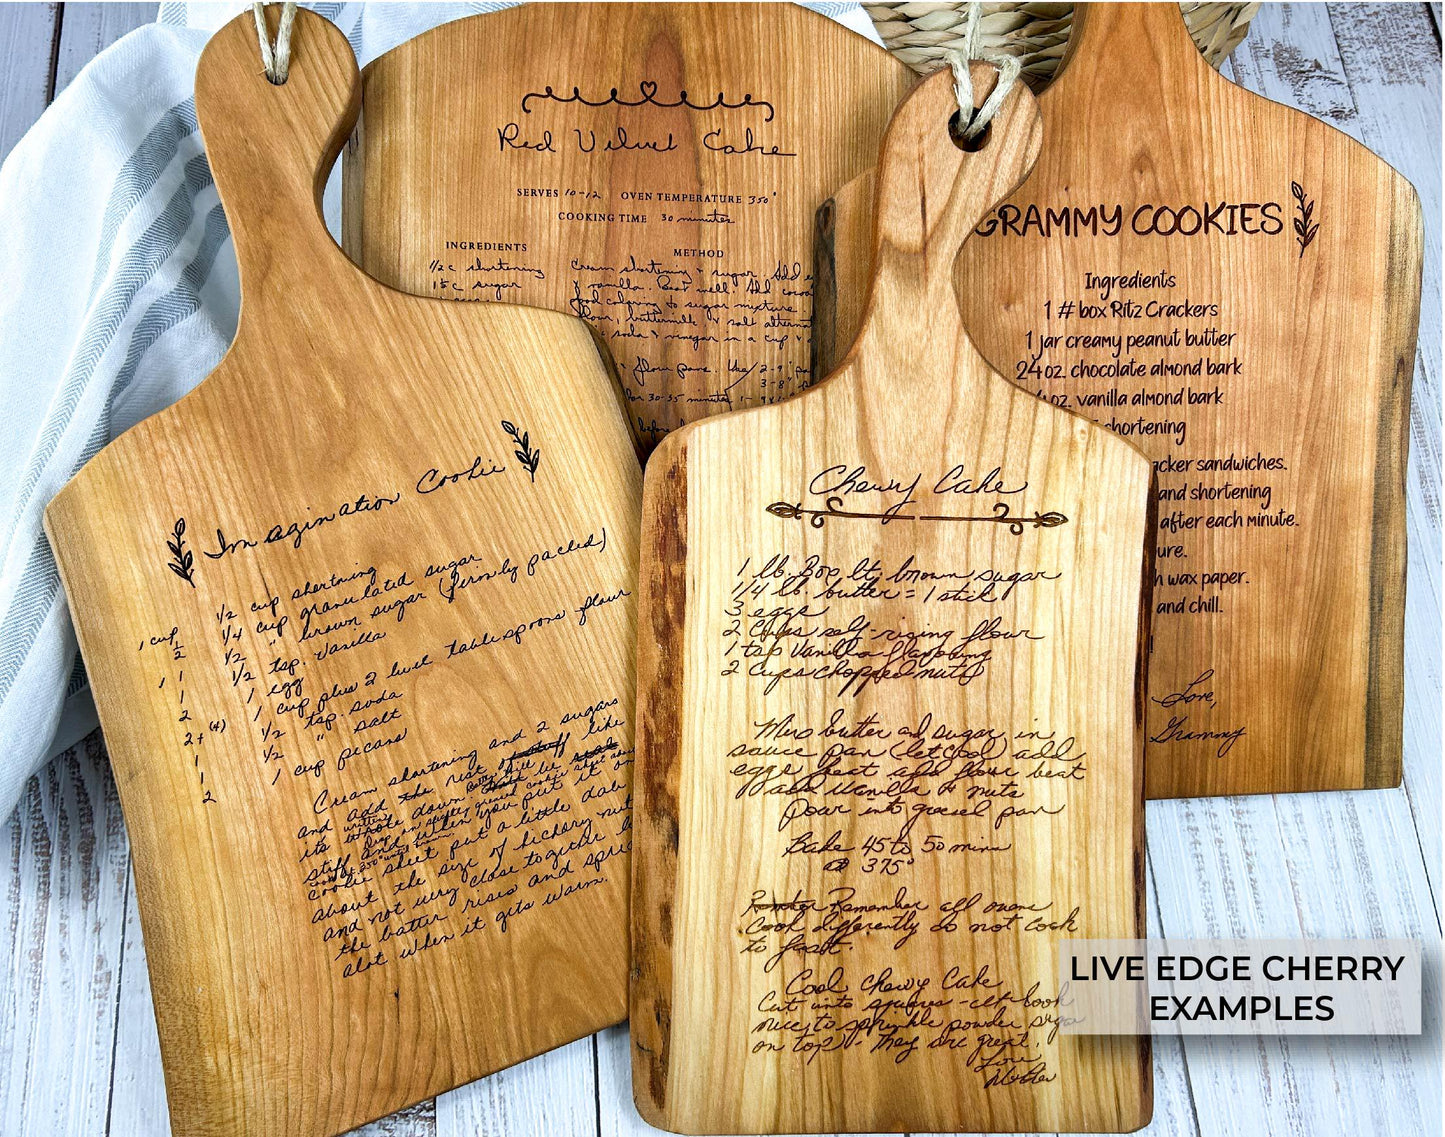 Red Velvet Cake
SERVES 10-12 OVEN TEMPERATURE 350°
COOKING TIME 30 minutes
INGREDIENTS METHOD
1/2 c shortening
1 1/2 c sugar
Cream shortening & sugar. Add
& vanilla. Beat well. Add cocoa
food coloring to sugar mixture
flour, buttermilk & salt
soda & vinegar in a cup &
flour pans. Use 2-9"
3-8"
30-35 minutes
before
GRAMMY COOKIES
Ingredients
1 # box Ritz Crackers
1 jar creamy peanut butter
24 oz. chocolate almond bark
oz. vanilla almond bark
shortening
cker sandwiches.
and shortening
after each minute.
ure.
wax paper.
and chill.
Love,
Grammy
Imagination Cookie
1/2 cup shortning
1/4 cup granulated sugar
1 cup 1/2 " brown sugar (firmly packed)
1/2 1/2 tsp. vanilla
1 1 1 egg
2 1 cup plus 2 level tablespoons flour
2+ (4) 1/2 tsp. soda
1 1/2 " salt
1 1 cup pecans
2
Cream shortening and 2 sugars
and add the rest of stuff like
its wrote down
stuff and when you put it on
cookie sheet put a little dab
about the size of hickory nut
and not very close together
the batter rises and
alot when it gets warm.
Chewy Cake
1 lb. Box lt. brown sugar
1/4 lb. butter = 1 stick
3 eggs
2 Cups self-rising flour
1 tsp Vanilla flavoring
2 Cups chopped nuts
Mix butter and sugar in
sauce pan (let cool) add
eggs beat add flour beat
add vanilla & nuts
Pour into greased pan
Bake 45 to 50 mins
@ 375°
Remember all ovens
Cook differently do not cook
to fast.
Cool Chewy Cake
Cut into squares - look
nice to sprinkle powder
on top - They are great.
Love
LIVE EDGE CHERRY
EXAMPLES